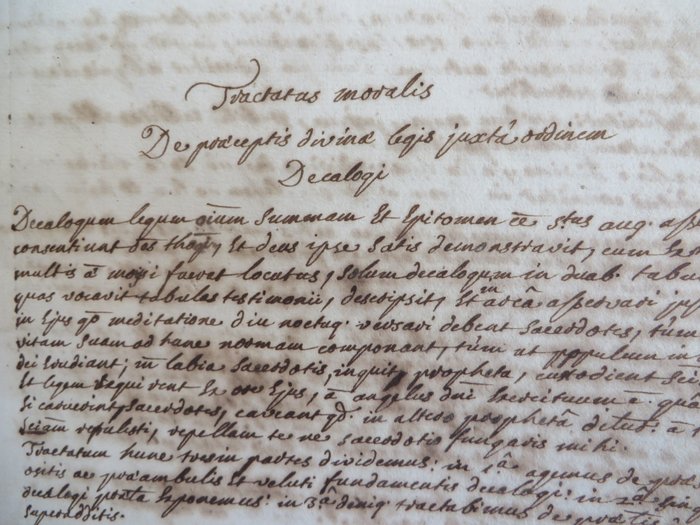 Tractatus moralis
De præceptis divinæ legis juxtà ordinem
Decalogi
Decalogum legum õium summam Et Epitomen ẽe stus aug. ass
consentiunt oẽs Et deus ipse satis demonstravit, cum
multis locutus, solum decalogum in duab. tabu
quas vocavit tabulas testimonii, descripsit, Et in arcâ asservari ju
in Ejus meditatione diu noctuq. versari debent sacerdotes, tum
vitam suam ad hanc normam componant, tùm ut populum in
dei Erudiant; labia sacerdotis, inquit propheta, custodient sci
Et legem requirent Ex ore Ejus, angelus dni Exercituum
Si caruerint sacerdotes, caveant in altero prophetâ
sciam repulisti, repellam te ne sacerdotio fungaris mihi.
Tractatum hunc tres in partes dividemus: in 1â agemus de
ositis ac præambulis Et veluti fundamentis decalogi: in 2â sin
decalogi Exponemus: in 3â deniq. tractabimus de
superadditis.